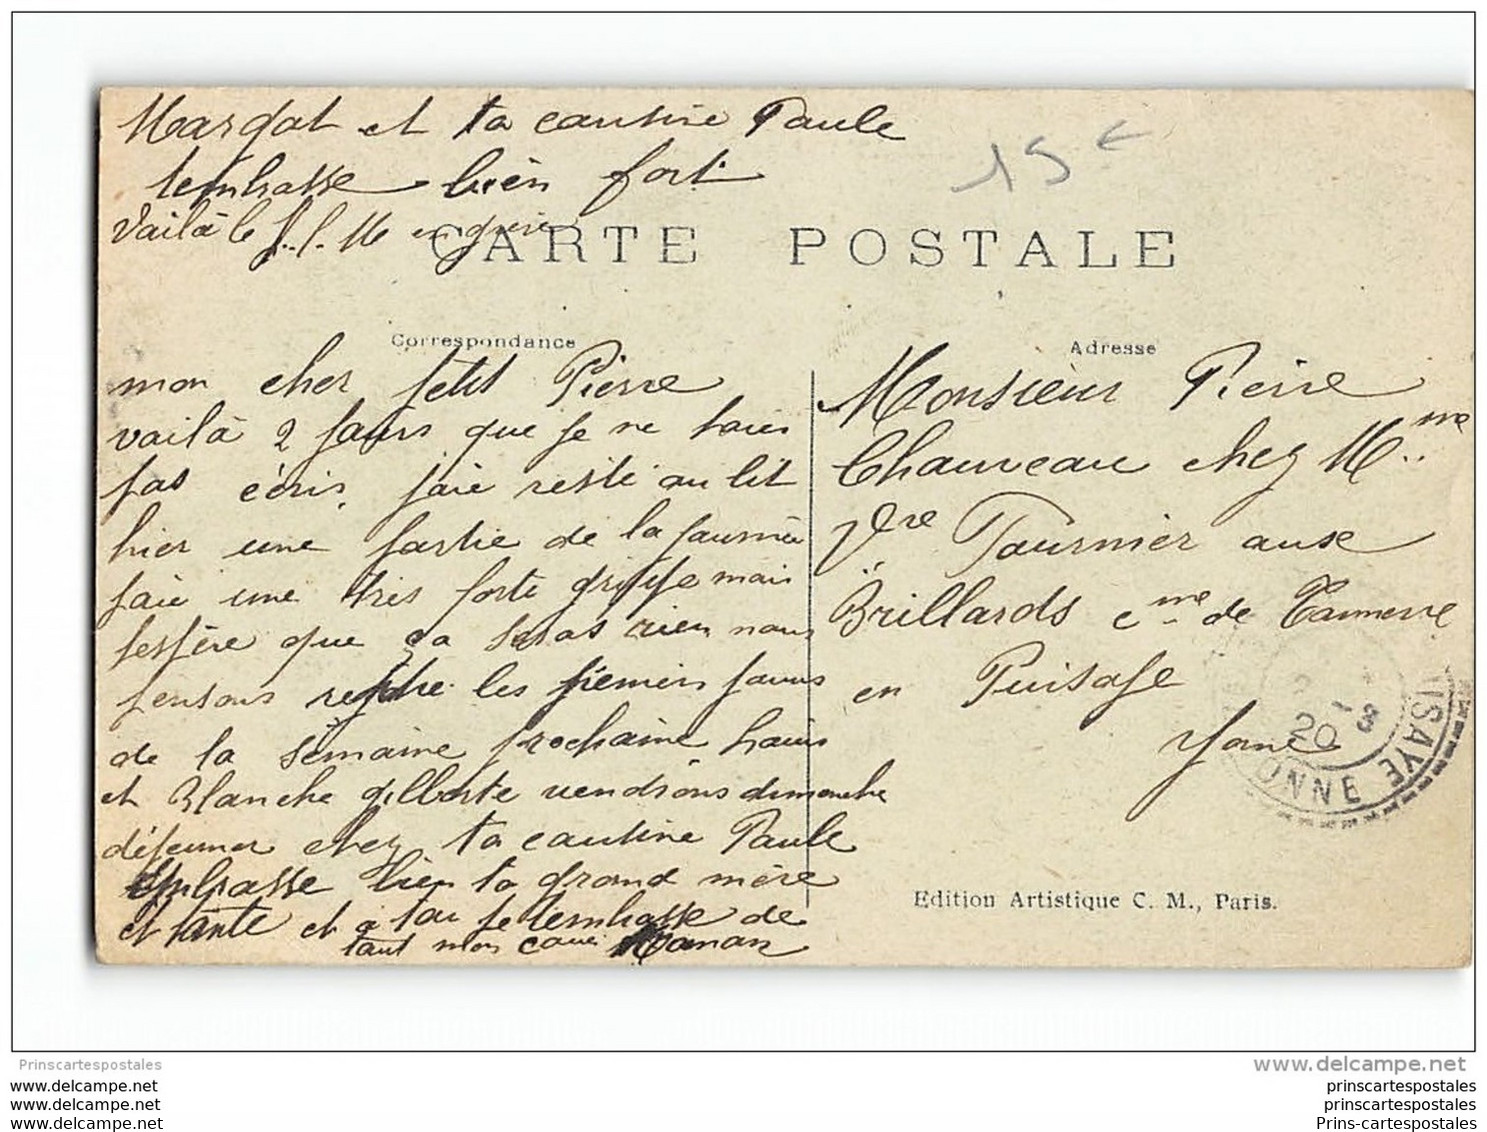 Margot et ta cousine Paule
tembrasse bien fort
Voilà le P.L.M en grève
15€
CARTE POSTALE
Correspondance
Adresse
mon cher petit Pierre
voilà 2 jours que je ne tavais
pas écris. jaie resté au lit
hier une partie de la journée
jaie une très forte grippe mais
jespère que ça seras rien nous
pensons repdre les premiers jours
de la semaine prochaine Louis
et Blanche gilberte viendrons dimanche
déjeuner chez ta cousine Paule
Embrasse bien ta grand mère
et tante et a toi je tembrasse de
tout mon coeur Maman
Monsieur Pierre
Chauveau chez Mme
Vve Tournier aux
Brillards cne de Tannerre
en Puisaye
Yonne
20
ISAYE
YONNE
Edition Artistique C. M., Paris.
Prinscartespostales
www.delcampe.net
www.delcampe.net
prinscartespostales
www.delcampe.net
prinscartespostales
www.delcampe.net
Prins-cartespostales